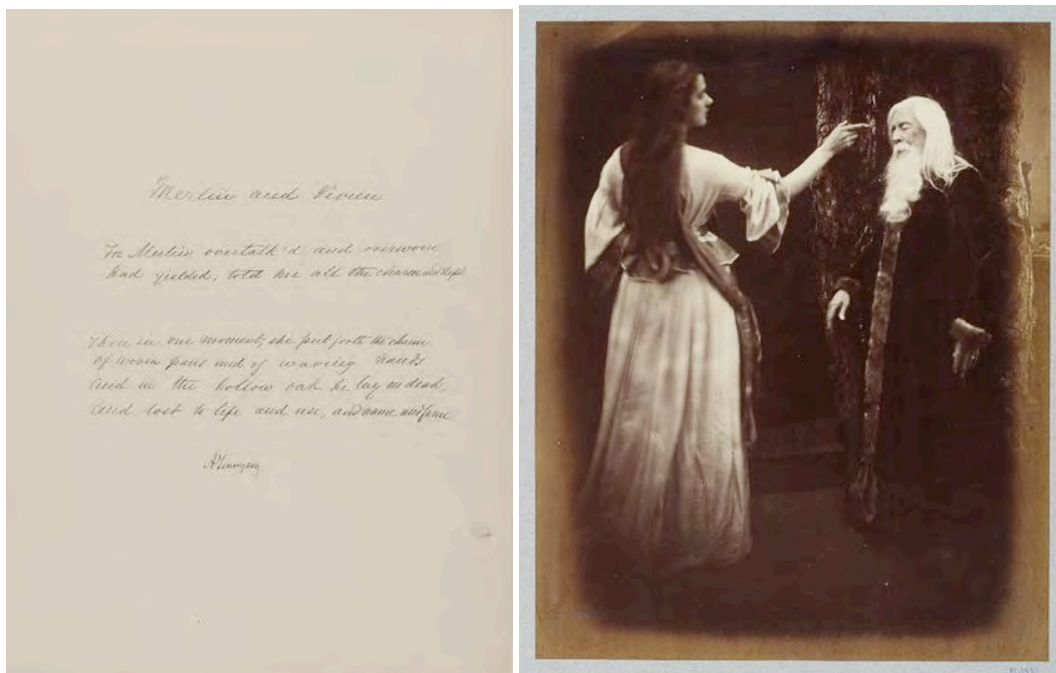 Merlin and Vivien
For Merlin overtalk'd and overworn
Had yielded, told her all the charm and slept
Then in one moment, she put forth the charm
Of woven paces and of waving hands
And in the hollow oak he lay as dead,
And lost to life and use, and name and fame
A Tennyson